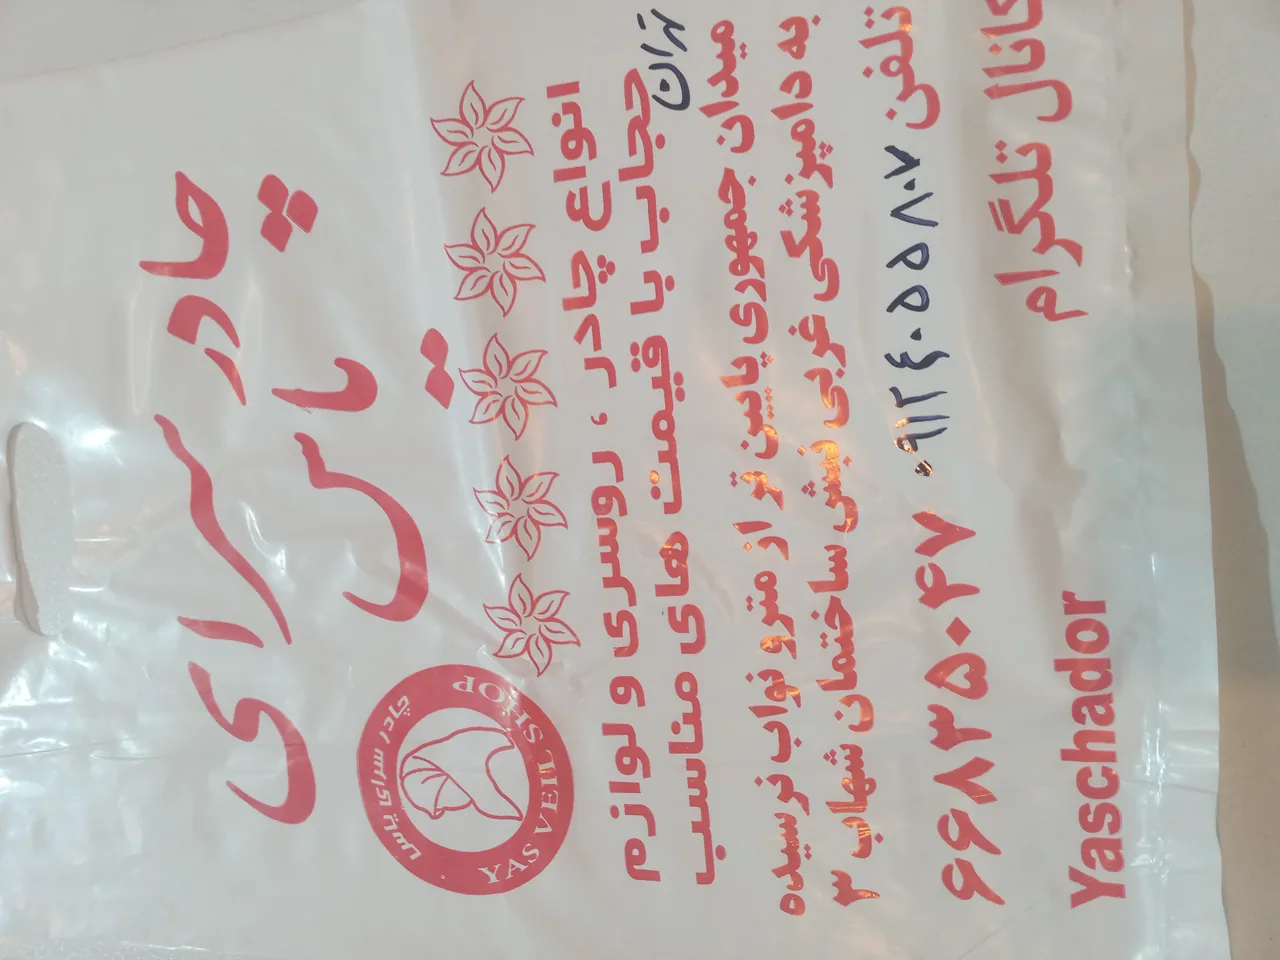 چادر سرای
یاس
چادر سرای یاس
YAS VEIL SHOP
انواع چادر ، روسری و لوازم
حجاب با قیمت های مناسب
تهران
میدان جمهوری پایین تر از مترو نواب نرسیده
به دامپزشکی غربی نبش ساختمان شهاب ۳
تلفن ۶۶۸۳۵۰۴۷
۰۹۱۲۴۰۵۵۸۰۷
کانال تلگرام Yaschador